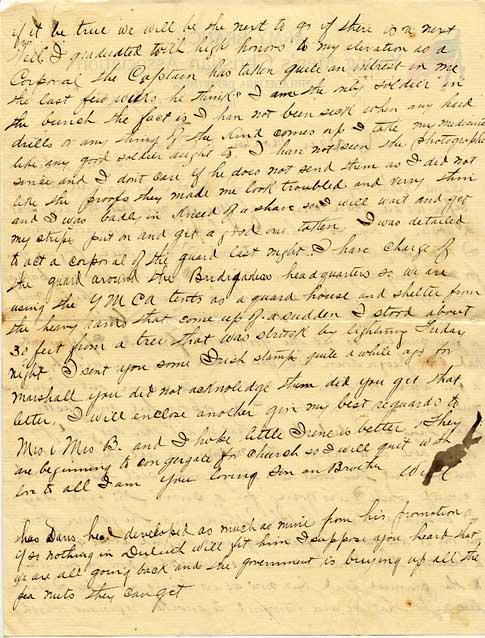 if it be true we will be the next to go if there is a next
Well I graduated with high honors to my elevation as a
Corporal the Captain has taken quite an intrest in me
the last few weeks he thinks I am the only soldier in
the bunch the fact is I han not been sick when any hard
drills or any thing of the kind comes up I take my medicine
like any good soldier aught to. I han not seen the photographer
since and I dont care if he does not send them as I did not
like the proofs they made me look troubled and very thin
and I was badly in kneed of a shave so I will wait and get
my stripe put on and get a good one taken I was detailed
to act a corporal of the guard last night. I have charge of
the guard around the headquarters so we are
using the YMCA tents as a guard house and shelter from
the heavy rains that come up of a sudden I stood about
30 feet from a tree that was struck by lightning Friday
night I sent you some Irish stamp quite a while ago for
Marshall you did not acknoledge them did you get that
letter, I will enclose another gin my best reguards to
Mrs & Mrs B. and I hope little Irene is better, They
are beginning to congergate for church so I will quit with
lov to all I am your loving son an Brother
has Daves head developed as much as mine from his promotion
if so nothing in Duluth will fit him I suppose you heard that
we are all going back and the government is buying up all the
pea nuts they can get